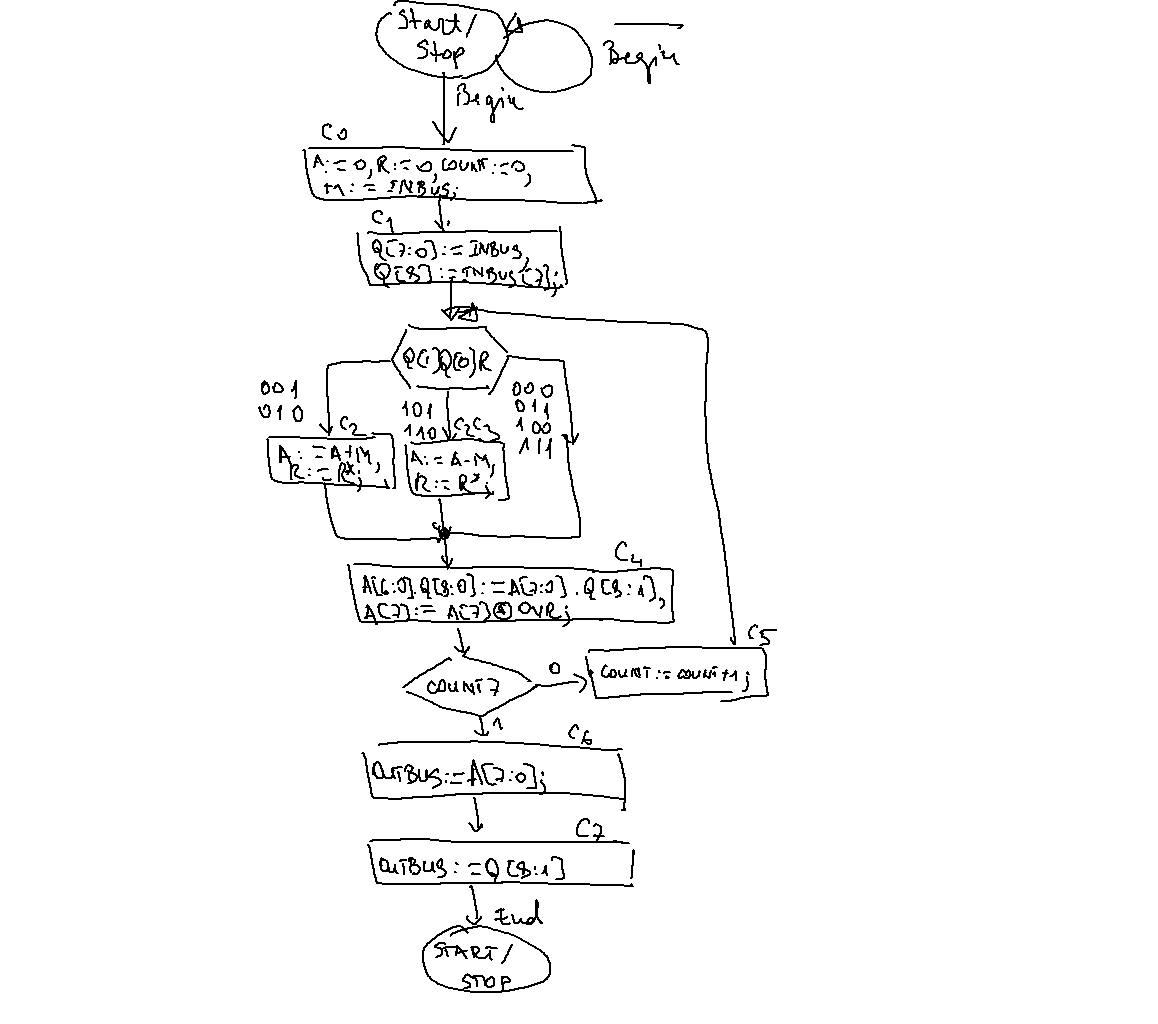 Start/
Stop
Begin
Begin
C0
A:=0, R:=0, COUNT:=0,
M:=INBUS;
C1
Q[7:0]:=INBUS,
Q[8]:=INBUS[7];
Q[1]Q[0]R
001
010
C2
A:=A+M,
R:=R*;
101
110
C2C3
A:=A-M,
R:=R*;
000
011
100
111
C4
A[6:0].Q[8:0]:=A[7:0].Q[8:1],
A[7]:=A[7] OVR;
COUNT7
0
C5
COUNT:=COUNT+1;
1
C6
OUTBUS:=A[7:0];
C7
OUTBUS:=Q[8:1]
End
START/
STOP